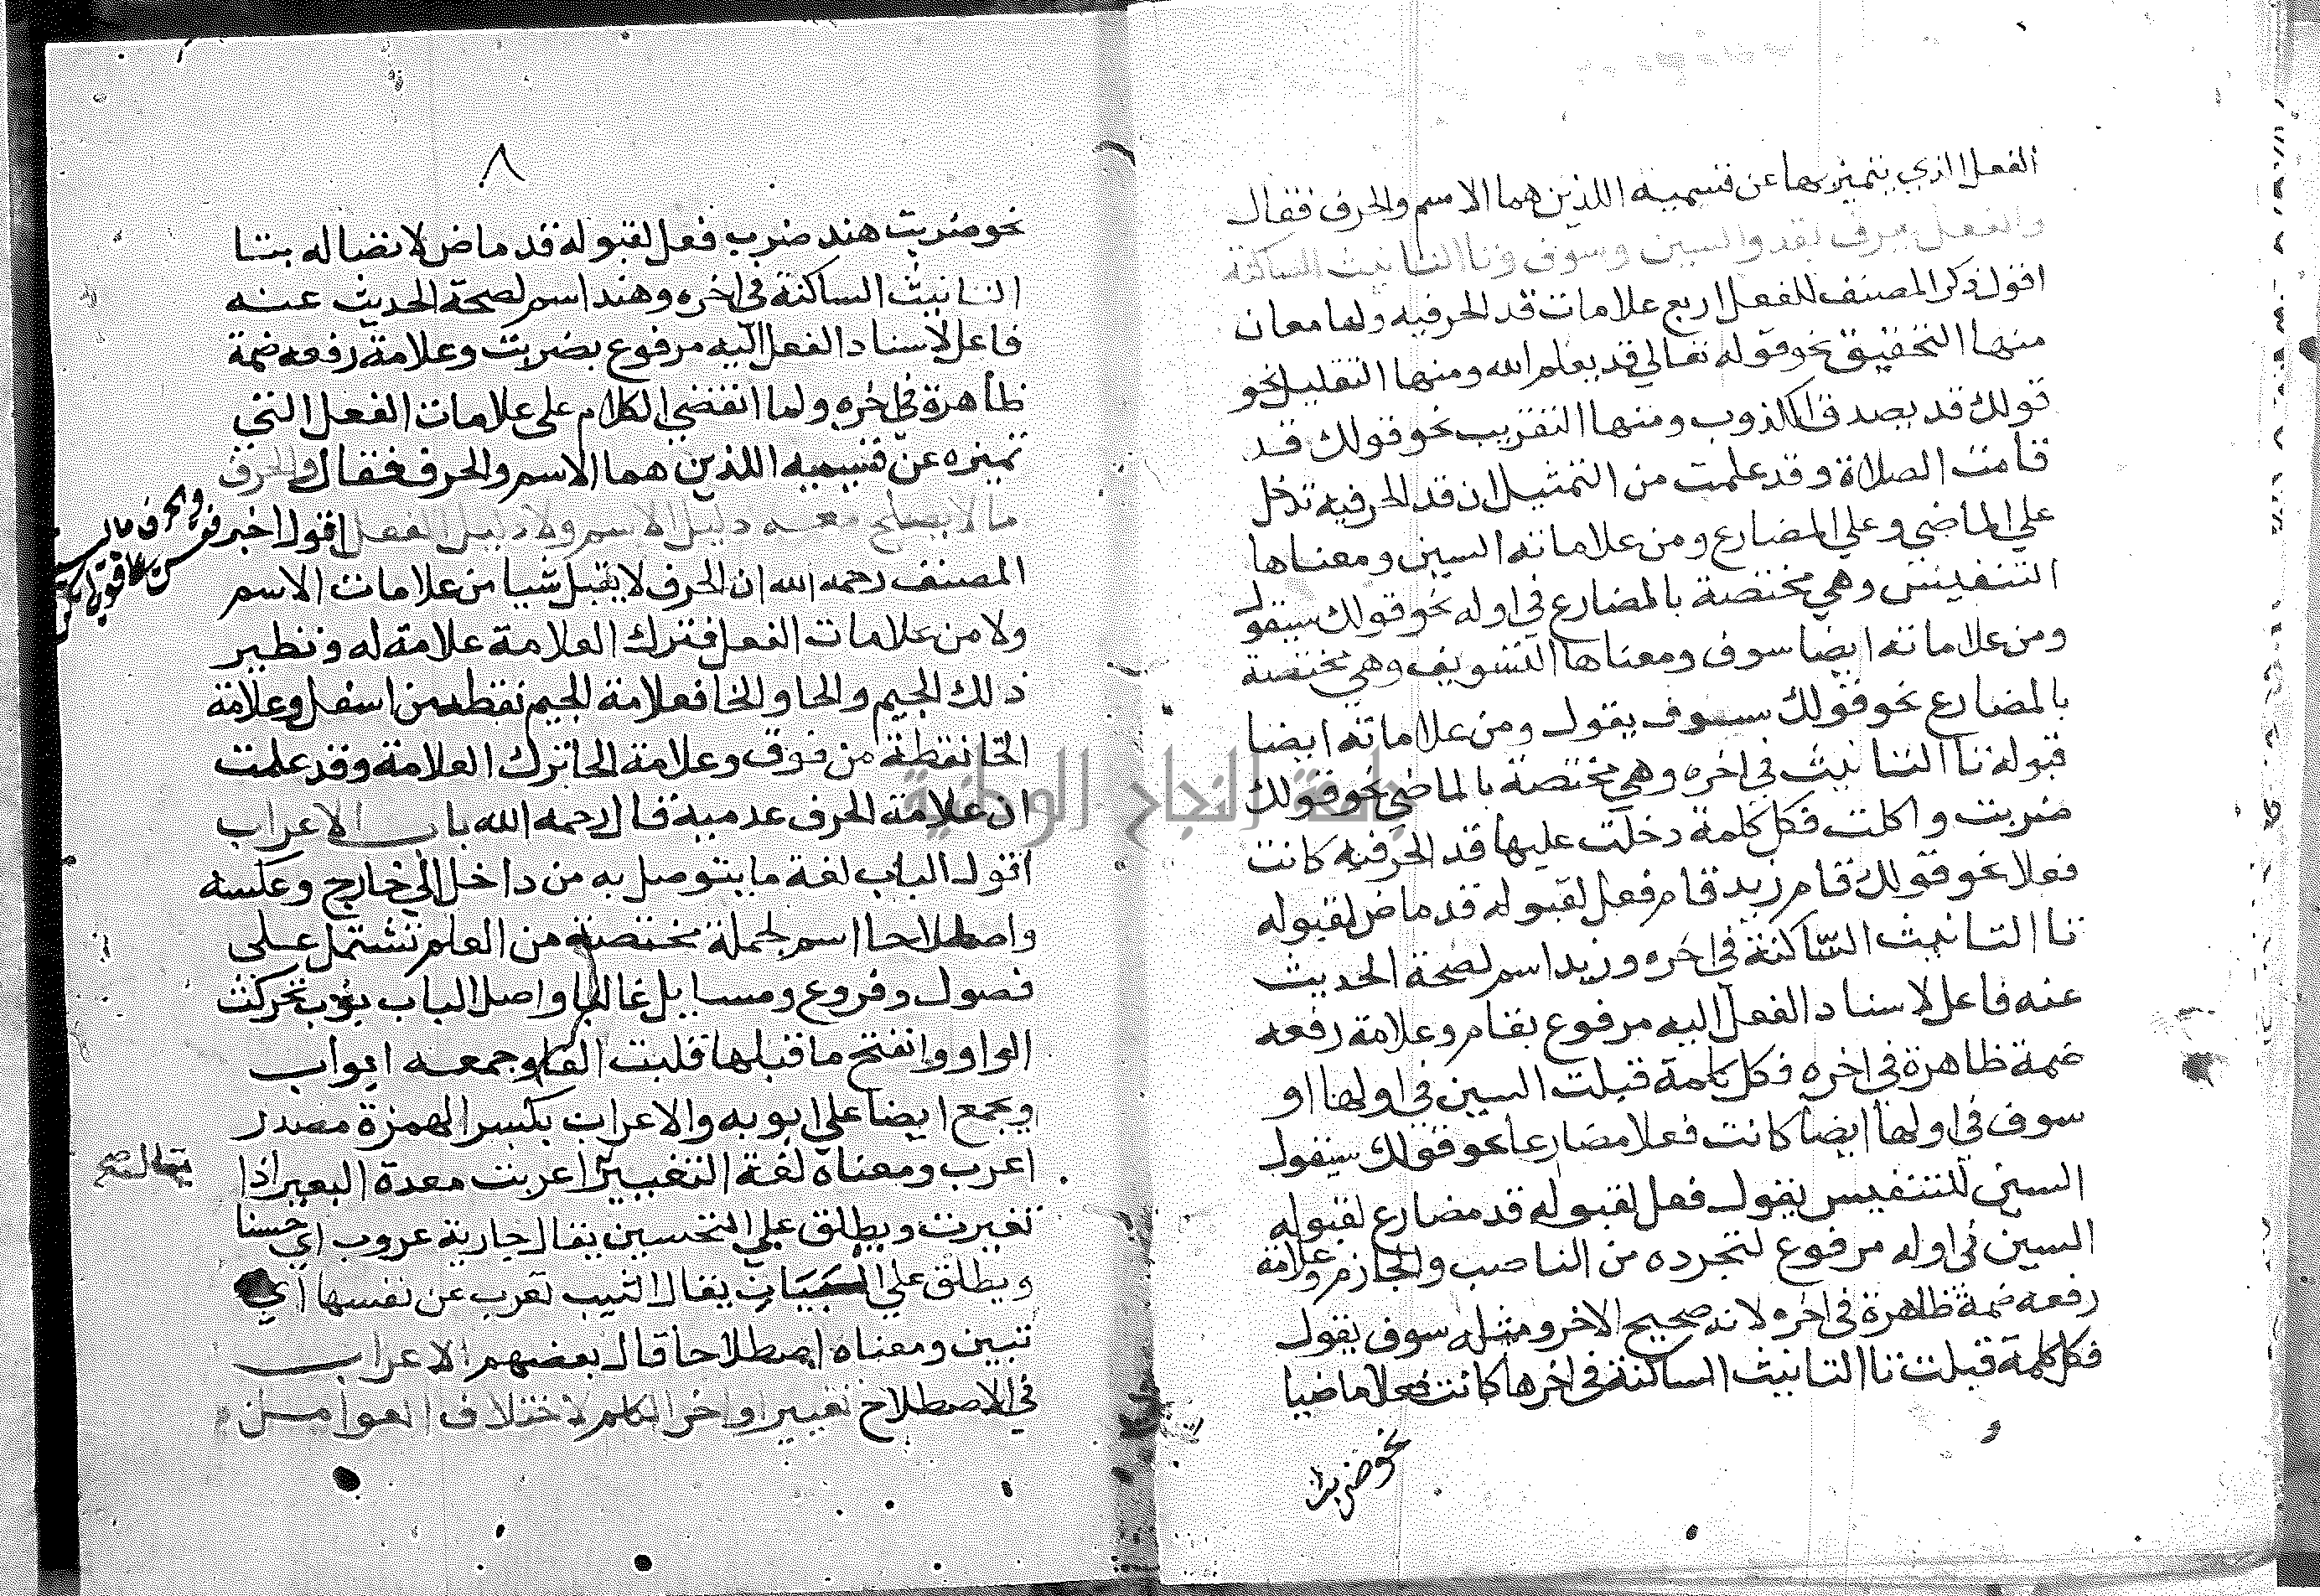 الفعل الذي يتميز بها عن قسميه اللذين هما الاسم والحرف فقال
والفعل يعرف بقد والسين وسوف وتا التانيث الساكنة
اقول ذكر المصنف للفعل اربع علامات قد الحرفيه ولها معان
منها التحقيق نحو قوله تعالي قد يعلم الله ومنها التقليل نحو
قولك قد يصدق الكذوب ومنها التقريب نحو قولك قد
قامت الصلاة وقد علمت من التمثيل ان قد الحرفيه تدخل
علي الماضي وعلي المضارع ومن علاماته السين ومعناها
التنفيس وهي مختصة بالمضارع في اوله نحو قولك سيقول
ومن علاماته ايضا سوف ومعناها التسويف وهي مختصة
بالمضارع نحو قولك سوف يقول ومن علاماته ايضا
قبوله تا التانيث في اخره وهي مختصة بالماضي نحو قولك
ضربت واكلت فكل كلمة دخلت عليها قد الحرفيه كانت
فعلا نحو قولك قام زيد قام فعل لقبوله قد ماض لقبوله
تا التانيث الساكنة في اخره وزيد اسم لصحة الحديث
عنه فاعل لاسناد الفعل اليه مرفوع بقام وعلامة رفعه
ضمة ظاهرة في اخره فكل كلمة قبلت السين في اولها او
سوف في اولها ايضا كانت فعلا مضارعا نحو قولك سيقول
السين للتنفيس يقول فعل لقبوله قد مضارع لقبوله
السين في اوله مرفوع لتجرده من الناصب والجازم وعلامة
رفعه ضمة ظاهرة في اخره لانه صحيح الاخر ومثله سوف يقول
فكل كلمة قبلت تا التانيث الساكنة في اخرها كانت فعلا ماضيا
نحو ضربت
٨
نحو ضربت هند ضرب فعل لقبوله قد ماض لاتصاله بتا
التانيث الساكنة في اخره وهند اسم لصحة الحديث عنه
فاعل لاسناد الفعل اليه مرفوع بضربت وعلامة رفعه ضمة
ظاهرة في اخره ولما انقضي الكلام على علامات الفعل التي
تميزه عن قسيميه اللذين هما الاسم والحرف فقال والحرف
ما لا يصلح معه دليل الاسم ولا دليل الفعل اقول اخبر
المصنف رحمه الله ان الحرف لا يقبل شيا من علامات الاسم
ولا من علامات الفعل فترك العلامة علامة له ونظير
ذلك الجيم والحا والخا فعلامة الجيم نقطه من اسفل وعلامة
الخا نقطة من فوق وعلامة الحا ترك العلامة وقد علمت
ان علامة الحرف عدمية قال رحمه الله باب الاعراب
اقول الباب لغة ما يتوصل به من داخل الي خارج وعكسه
واصطلاحا اسم لجملة مختصة من العلم تشتمل على
فصول وفروع ومسايل غالبا واصل الباب بوب تحركت
الواو وانفتح ما قبلها قلبت الفا وجمعه ابواب
ويجمع ايضا علي ابوبه والاعراب بكسر الهمزة مصدر
اعرب ومعناه لغة التغيير اعربت معدة البعير اذا
تغيرت ويطلق علي التحسين يقال جارية عروب اي حسنا
ويطلق علي البيان يقال الثيب تعرب عن نفسها اي
تبين ومعناه اصطلاحا قال بعضهم الاعراب
في الاصطلاح تغيير اواخر الكلم لاختلاف العوامل
جامعة النجاح الوطنية